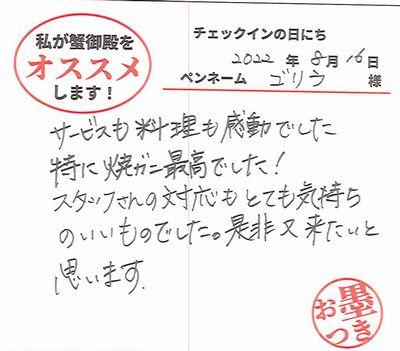 私が蟹御殿を
オススメ
します！
チェックインの日にち
2022 年 8 月 16 日
ペンネーム ゴリラ 様
サービスも料理も感動でした
特に焼ガニ最高でした！
スタッフさんの対応もとても気持ち
のいいものでした。是非又来たいと
思います.
お墨つき